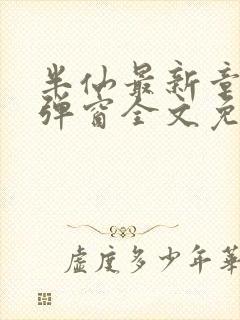 半仙最新章
弹窗全文免
虚度多少年华